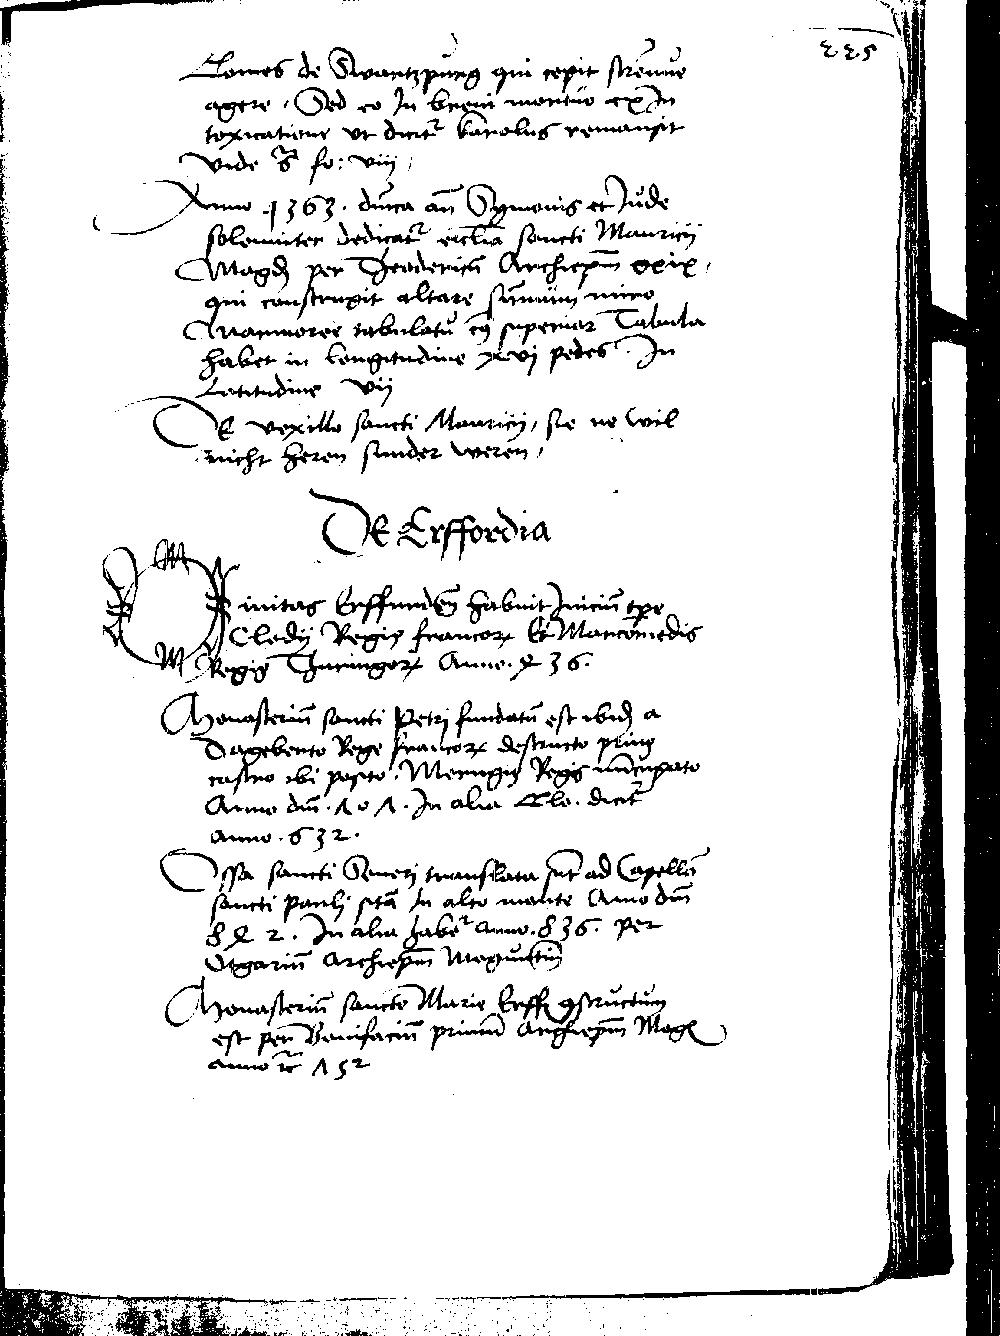 225
Comes de Swartzpurg qui cepit strenue
agere, Sed eo In breui mortuo ex In
toxicatione vt dicitr karolus remansit
vide sª fo: viij,
Anno 1363. dnica an Symonis et Jude
solemniter dedicatr ecclia sancti Mauricij
Magd per Theodericu Archiepm xxix,
qui construxit altare summu miro
Marmoree tabulatu cuius superior Tabula
habet in longitudine xvj pedes. In
Latitudine vij
DE vexillo sancti Mauricij, sie ne wil
nicht heren sunder weren,
DE Erffordia
Ciuitas Erffurden habuit Iniciu tpe
Clodij Regis francor Et Marcomedis
Regis Thuringor Anno. 436.
Monasteriu sancti Petri fundatu est ibid a
Dageberto Rege francor destructo prius
castro ibi posito, Merwigis Regis nucupato
Anno dni. 707. In alia Clo. dicitr
anno. 632.
Ossa sancti Seueri translata sut ad Capella
sancti Pauli sita In alto monte Anno dni
842. In alia habetr anno. 836. per
Otgariu Archiepm Moguntin
Monasteriu sancte Marie Erff 9structum
est per Bonifaciu primu Archiepm Mog
anno rc 752